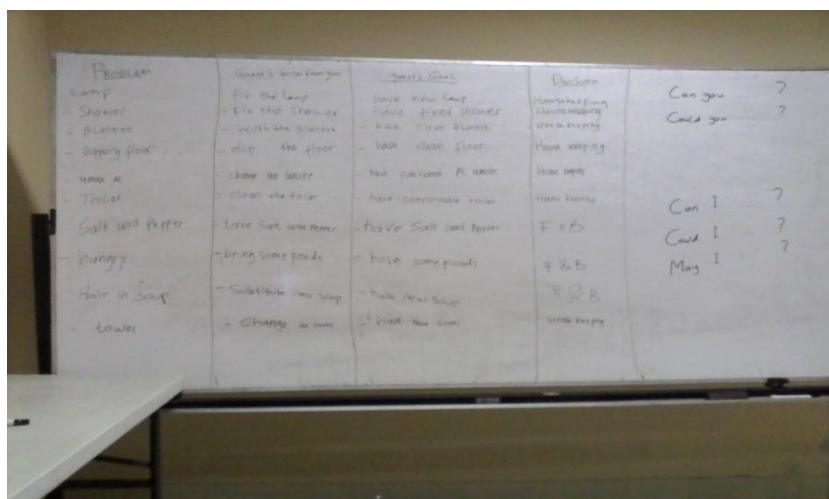 PROBLEM Guest's guest Goals Division
Lamp - Fix the lamp have new lamp Housekeeping Can you ... ?
- Shower - Fix the shower - have fixed shower Housekeeping Could you ... ?
- Blanket - Wash the Blanket - have clean blanket Housekeeping
- Slippery floor - mop the floor - have clean floor House keeping
- remote AC - change the - have AC remote House keeping
- Toilet - clean the toilet - have comfortable toilet House keeping Can I ... ?
- Salt and Pepper - take Salt and Pepper - have Salt and Pepper F n B Could I ... ?
- hungry - bring some foods - have some foods F & B May I ... ?
- Hair in Soup - Substitute new soup - have new soup F & B
- towel - Change - have new towel House keeping